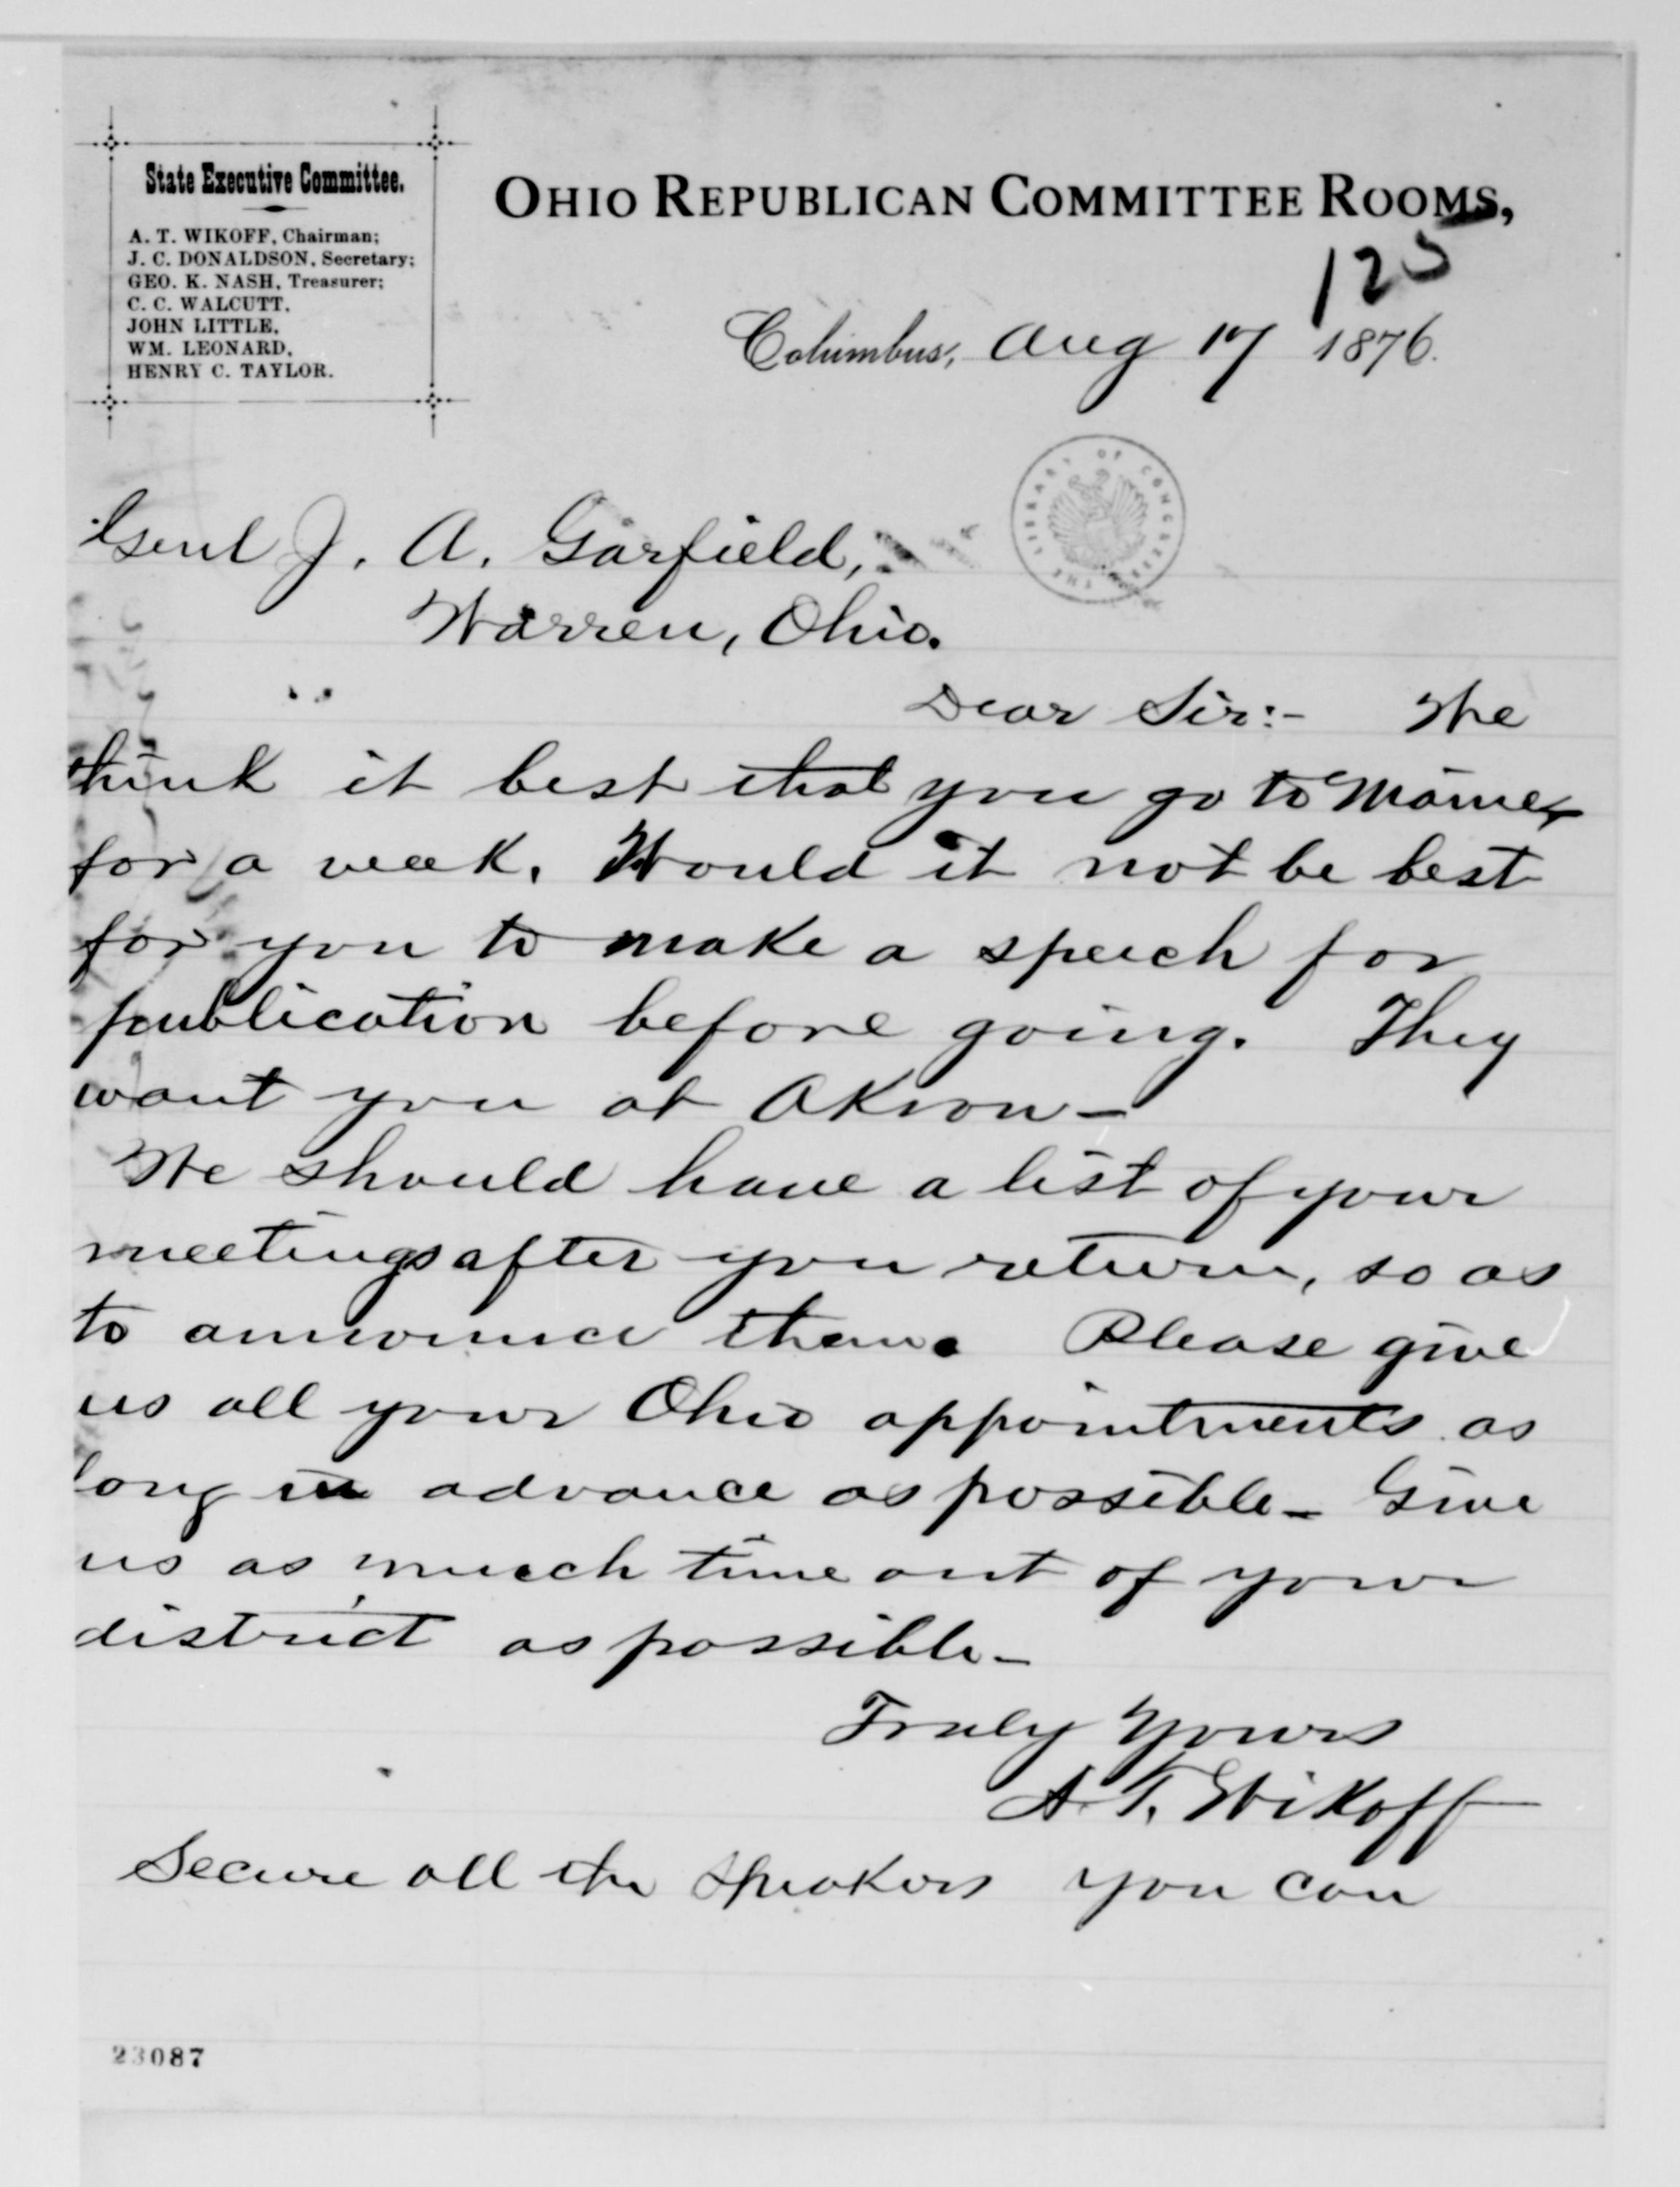 State Executive Committee.
A. T. WIKOFF, Chairman;
J. C. DONALDSON, Secretary;
GEO. K. NASH, Treasurer;
C. C. WALCUTT,
JOHN LITTLE,
WM. LEONARD,
HENRY C. TAYLOR.
OHIO REPUBLICAN COMMITTEE ROOMS,
125
Columbus, Aug 17 1876.
THE LIBRARY OF CONGRESS
Genl J. A. Garfield,
Warren, Ohio.
Dear Sir:- We
think it best that you go to Maine
for a week. Would it not be best
for you to make a speech for
publication before going. They
want you at Akron-
We should have a list of your
meetings after you return, so as
to announce them. Please give
us all your Ohio appointments as
long in advance as possible- Give
us as much time out of your
district as possible-
Truly Yours
A. T. Wikoff
Secure all the speakers you can
23087